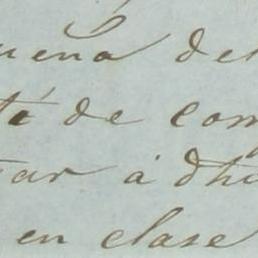 uena de
tá de com
tar á dh
en clase